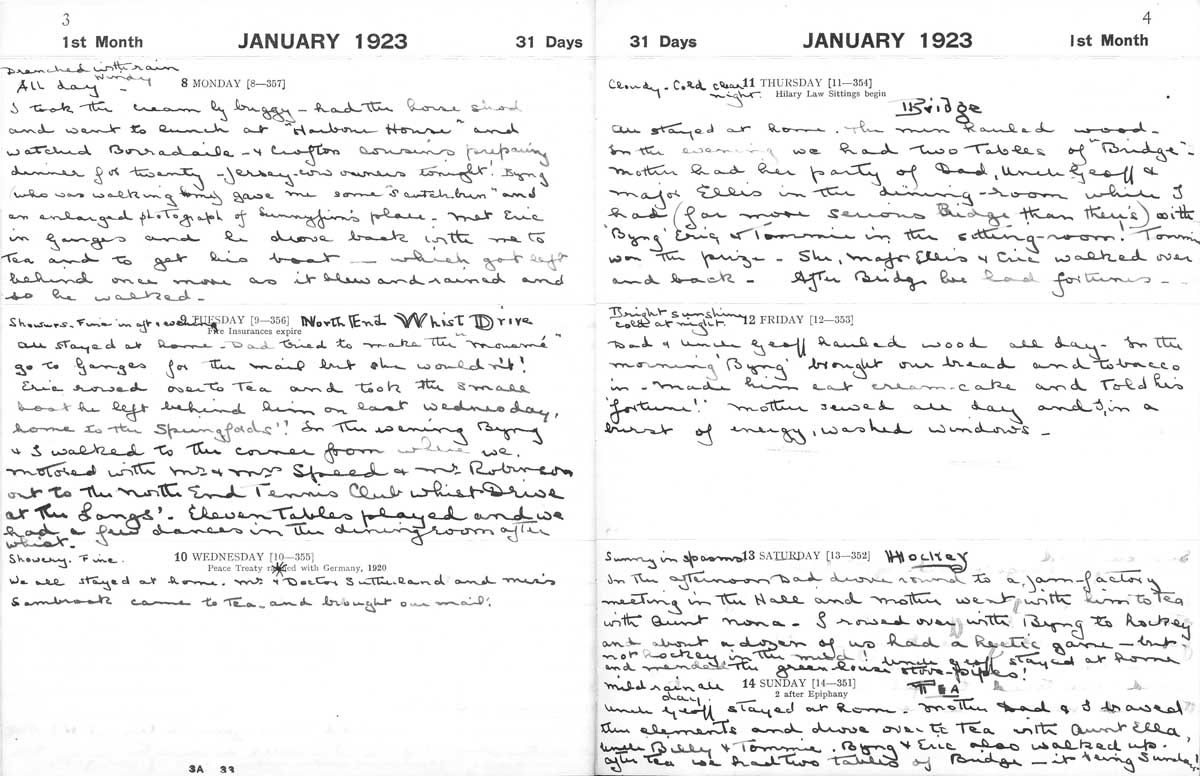 3
1st Month JANUARY 1923 31 Days
Drenched with rain
All day - windy
8 MONDAY [8—357]
I took the cream by buggy - had the horse shod
and went to lunch at "Harbour House" and
watched Borradaile - & Crofton cousins preparing
dinner for twenty - Jersey-cow owners tonight! Byng
(who was walking) gave me some and
an enlarged photograph of Sunnyjim's place. Met Eric
in Ganges and he drove back with me to
Tea and to get his boat — which got left
behind once more as it blew and rained and
so he walked -
Showers. Fine in aft & evening
9 TUESDAY [9—356] NORTH END WHIST DRIVE
Fire Insurances expire
All stayed at home - Dad tried to make the
go to Ganges for the mail but she wouldn't!
Eric rowed over to Tea and took the small
boat he left behind him on last Wednesday,
home to the Springfords'! In the evening Byng
& I walked to the corner from where we
motored with Mr & Mrs Speed & Mr Robinson
out to the North End Tennis Club Whist Drive
at The Langs'. Eleven Tables played and we
had a few dances in the diningroom after
whist.
Showery. Fine.
10 WEDNESDAY [10—355]
Peace Treaty ratified with Germany, 1920
We all stayed at home. Mrs & Doctor Sutherland and
Sambrook came to Tea - and brought our mail!
3A 33
4
31 Days JANUARY 1923 1st Month
Cloudy - Cold clear
night.
11 THURSDAY [11—354]
Hilary Law Sittings begin
Bridge
All stayed at home. The men hauled wood -
In the evening we had two Tables of "Bridge" -
Mother had her party of Dad, Uncle Geoff &
Major Ellis in the dining-room while I
had (far more serious Bridge than they's) with
'Byng' Eric & Tommie in the sitting-room! Tommie
won the prize - She, Major Ellis & Eric walked over
and back - After Bridge we had fortunes - -
Bright sunshine
cold at night.
12 FRIDAY [12—353]
Dad & Uncle Geoff hauled wood all day - In the
morning 'Byng' brought our bread and tobacco
in - Made him eat cream-cake and Told his
'fortune'!' Mother sewed all day and I, in a
burst of energy, washed windows -
Sunny in spasms
13 SATURDAY [13—352] HOCKEY
In the afternoon Dad drove round to a Jam-factory
meeting in the Hall and Mother went with him to tea
with Aunt Nona - I rowed over with Byng to hockey
and about a dozen of us had a hectic game - but
not hockey in the mud! Uncle Geoff stayed at home
and mended the green-house stove-pipes!
Mild rain all
day.
14 SUNDAY [14—351]
2 after Epiphany
TEA
Uncle Geoff stayed at home - Mother Dad & I braved
the elements and drove over to Tea with Aunt Ella,
Uncle Billy & Tommie. Byng & Eric also walked up.
After tea we had two tables of Bridge - it being Sunday